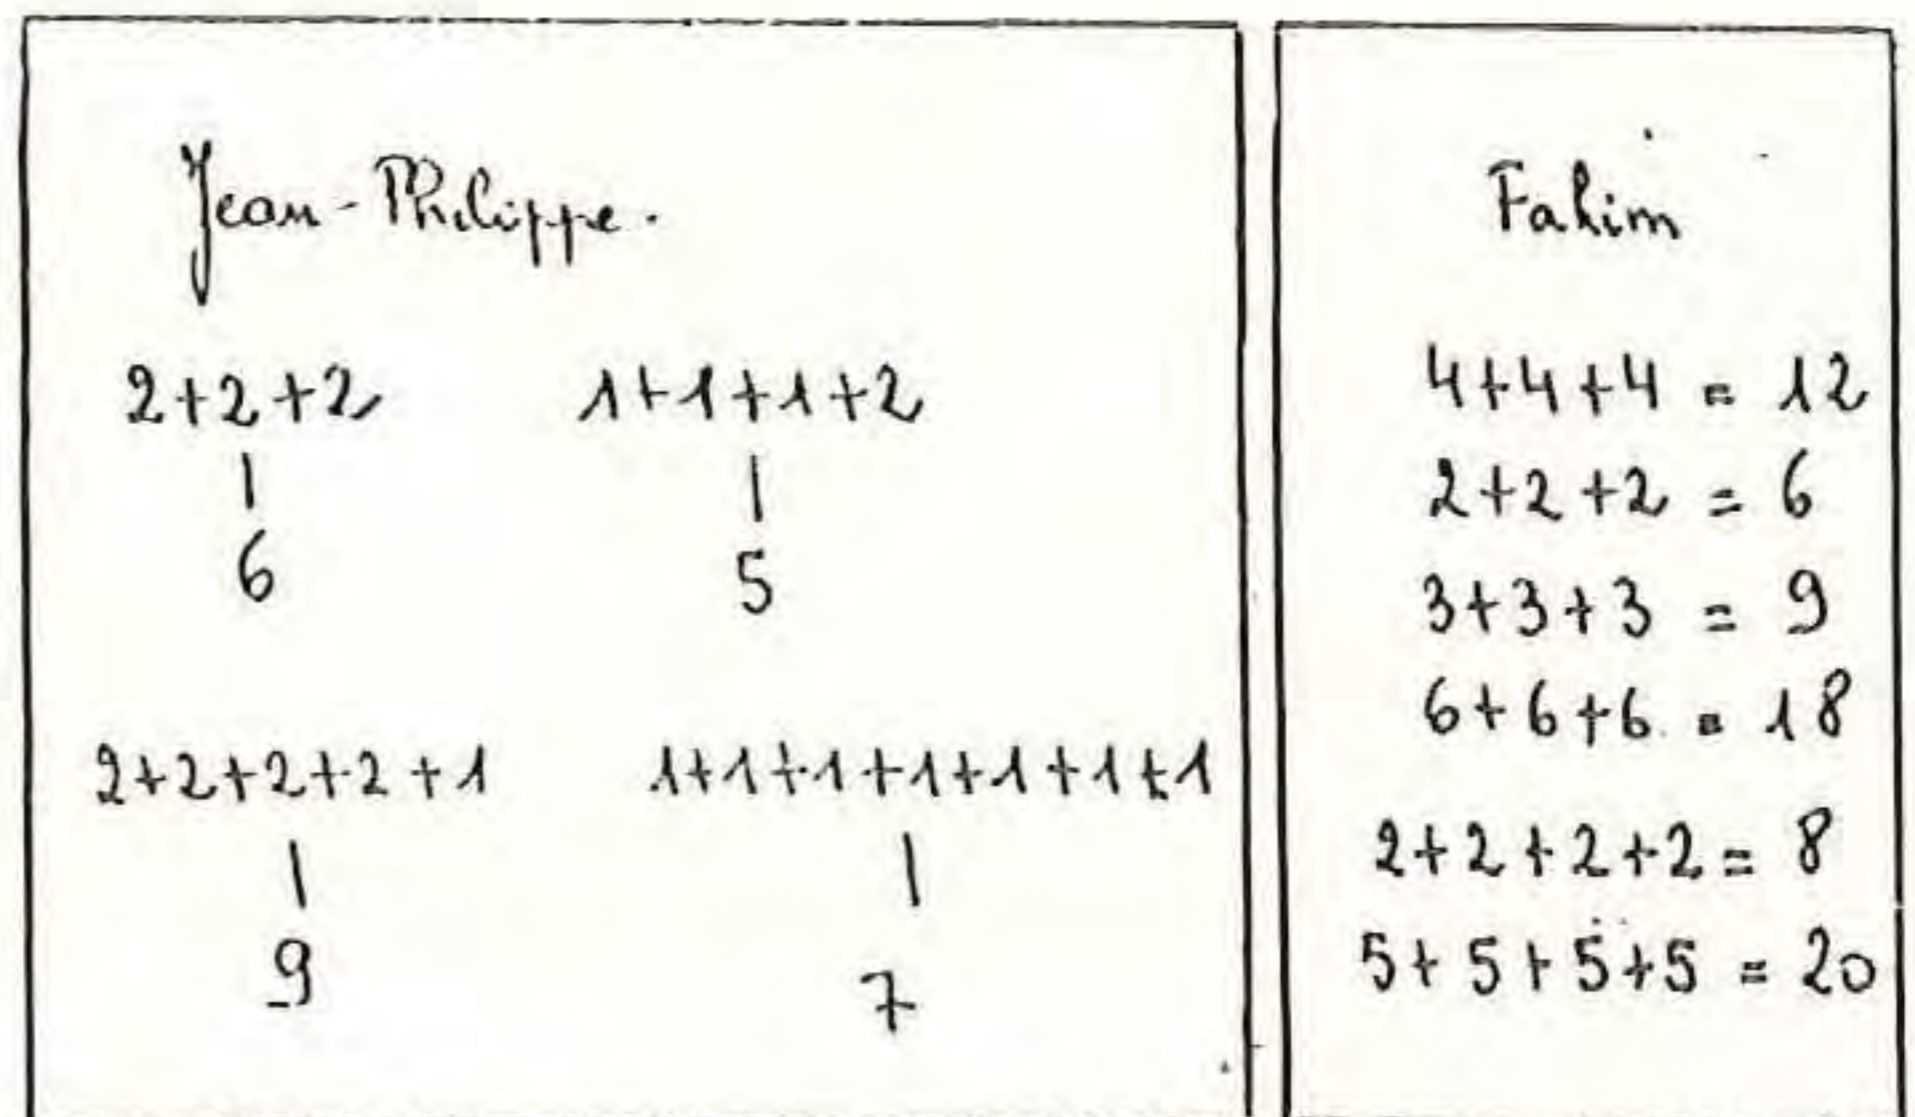 Jean-Philippe.
2+2+2 1+1+1+2
| |
6 5
2+2+2+2+1 1+1+1+1+1+1+1
| |
9 7
Fahim
4+4+4 = 12
2+2+2 = 6
3+3+3 = 9
6+6+6 = 18
2+2+2+2 = 8
5+5+5+5 = 20